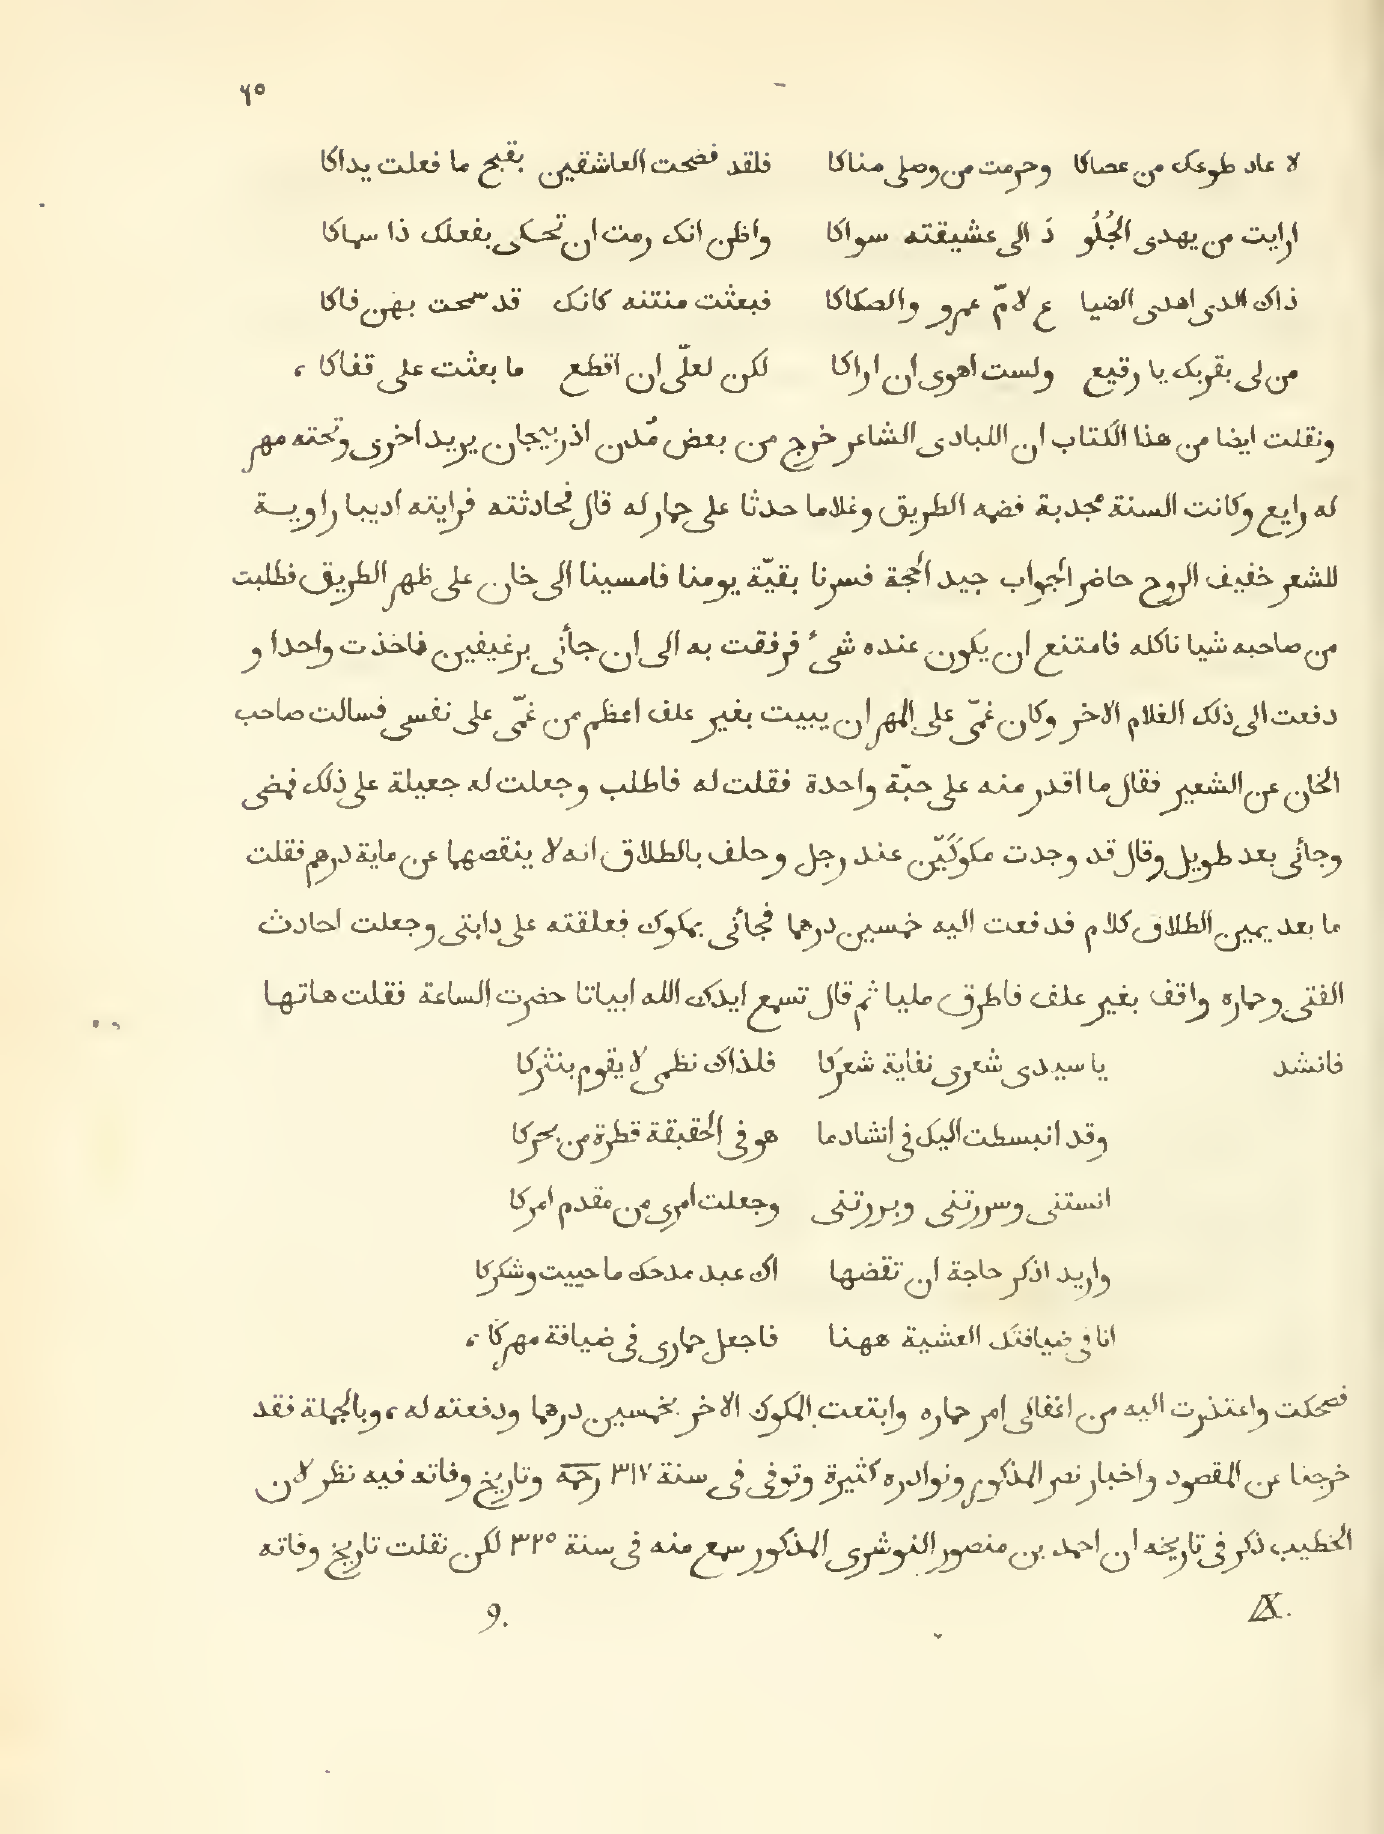 ٦٥
لا عاد طوعك من عصاكا وحرمت من وصلى مناكا فلقد فضحت العاشقين بقبح ما فعلت يداكا
ارايت من يهدى الجُلُو ذ الى عشيقته سواكا واظن انك رمت ان تحكى بفعلك ذا سماكا
ذاك الذى اهدى الضيا ع لامّ عمرو والصكاكا فبعثت منتنه كانك قد سمحت بهن فاكا
من لى بقربك يا رقيع ولست اهوى ان اراكا لكن لعلّى ان اقطع ما بعثت على قفاكا ،
ونقلت ايضا من هذا الكتاب ان اللبادى الشاعر خرج من بعض مُدن اذربيجان يريد اخرى وتحته مهر
له رايع وكانت السنة مجدبة فضمه الطريق وغلاما حدثا على حمار له قال فحادثته فرايته اديبا راويـة
للشعر خفيف الروح حاضر الجواب جيد الحجة فسرنا بقيّة يومنا فامسينا الى خان على ظهر الطريق فطلبت
من صاحبه شيا ناكله فامتنع ان يكون عنده شىء فرفقت به الى ان جأنى برغيفين فاخذت واحدا و
دفعت الى ذلك الغلام الاخر وكان غمّى على المهر ان يبيت بغير علف اعظم من غمّى على نفسى فسالت صاحب
الخان عن الشعير فقال ما اقدر منه على حبّة واحدة فقلت له فاطلب وجعلت له جعيلة على ذلك فمضى
وجأنى بعد طويل وقال قد وجدت مكوكَيّن عند رجل وحلف بالطلاق انه لا ينقصهما عن ماية درهم فقلت
ما بعد يمين الطلاق كلام فدفعت اليه خمسين درهما فجأنى بمكوك فعلقته على دابتى وجعلت احادث
الفتى وحماره واقف بغير علف فاطرق مليا ثم قال تسمع ايدك الله ابياتا حضرت الساعة فقلت هاتها
فانشد يا سيدى شعرى نفاية شعركا فلذاك نظمى لا يقوم بنثركا
وقد انبسطت اليك فى انشاد ما هو فى الحقيقة قطرة من بحركا
انستنى وسررتنى وبررتنى وجعلت امرى من مقدم امركا
واريد اذكر حاجة ان تقضها اك عبد مدحك ما حييت وشكركا
انا فى ضيافتك العشية ههنا فاجعل حمارى فى ضيافة مهركا ،
فضحكت واعتذرت اليه من اغفالى امر حماره وابتعت المكوك الاخر بخمسين درهما ودفعته له ، وبالجملة فقد
خرجنا عن المقصود واخبار نصر المذكور ونوادره كثيرة وتوفى فى سنة ٣١٧ رحمه وتاريخ وفاته فيه نظر لان
الخطيب ذكر فى تاريخه ان احمد بن منصور النوشرى المذكور سمع منه فى سنة ٣٢٥ لكن نقلت تاريخ وفاته
IX. 9.